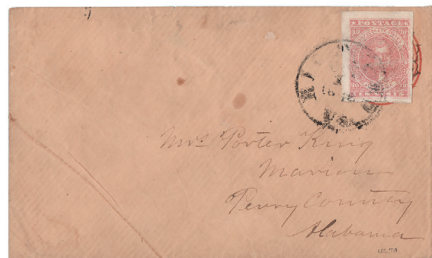 POSTAGE
Mrs Porter King
Marion
Perry County
Alabama